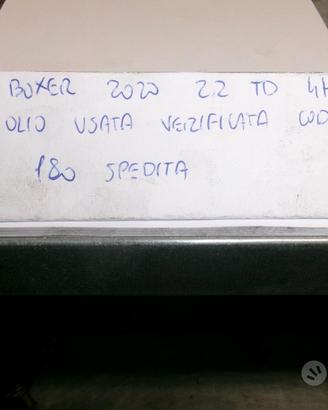 BOXER 2020 2.2 TD 4H
OLIO USATA VERIFICATA COD
180 SPEDITA